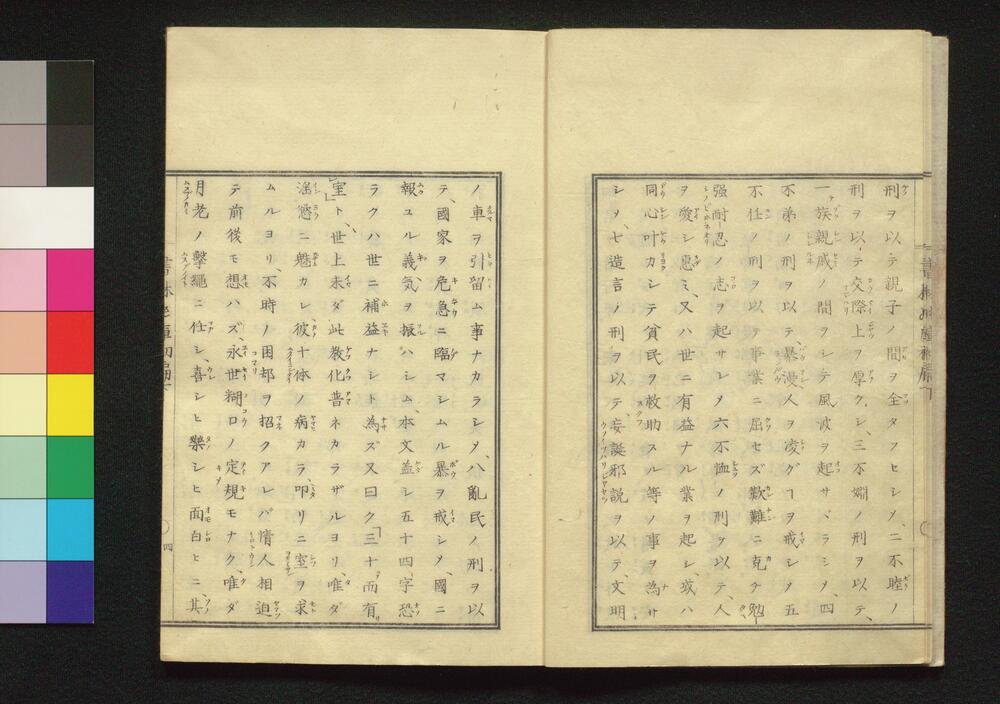 刑ヲ以テ親子ノ間ヲ全タフセシメ、二不睦ノ
刑ヲ以テ交際上ヲ厚クシ、三不婣ノ刑ヲ以テ、
一族親戚ノ間ヲシテ風波ヲ起サヾラシメ、四
不弟ノ刑ヲ以テ暴漫人ヲ凌グヿヲ戒シメ五
不任ノ刑ヲ以テ事業ニ屈セズ歎難ニ克チ勉
强耐忍ノ志ヲ起サシメ六不恤ノ刑ヲ以テ、人
ヲ愛シ惠ミ、又ハ世ニ有益ナル業ヲ起シ、或ハ
同心叶カシテ貧民ヲ救助スル等ノ事ヲ為サ
シメ、七造言ノ刑ヲ以テ、妄誕邪説ヲ以テ、文明
ノ車ヲ引留ム事ナカラシメ、八亂民ノ刑ヲ以
テ、國家ヲ危急ニ臨マシムル暴ヲ戒シメ、國ニ
報ユル義気ヲ振ハシム、本文盖シ五十四字恐
ラクハ世ニ補益ナシト為ズ又曰ク「三十而有
室」ト、世上未ダ此教化普ネカラザルヨリ唯ダ
滛慾ニ魅カレ彼十体ノ病カラ、叩リニ室ヲ求
ムルヨリ、不時ノ困却ヲ招クアレバ情人相迫
テ前後モ想ハズ、永世糊口ノ定規モナク、唯ダ
月老ノ擊繩ニ任シ、喜シヒ樂シヒ面白ヒニ、其
四